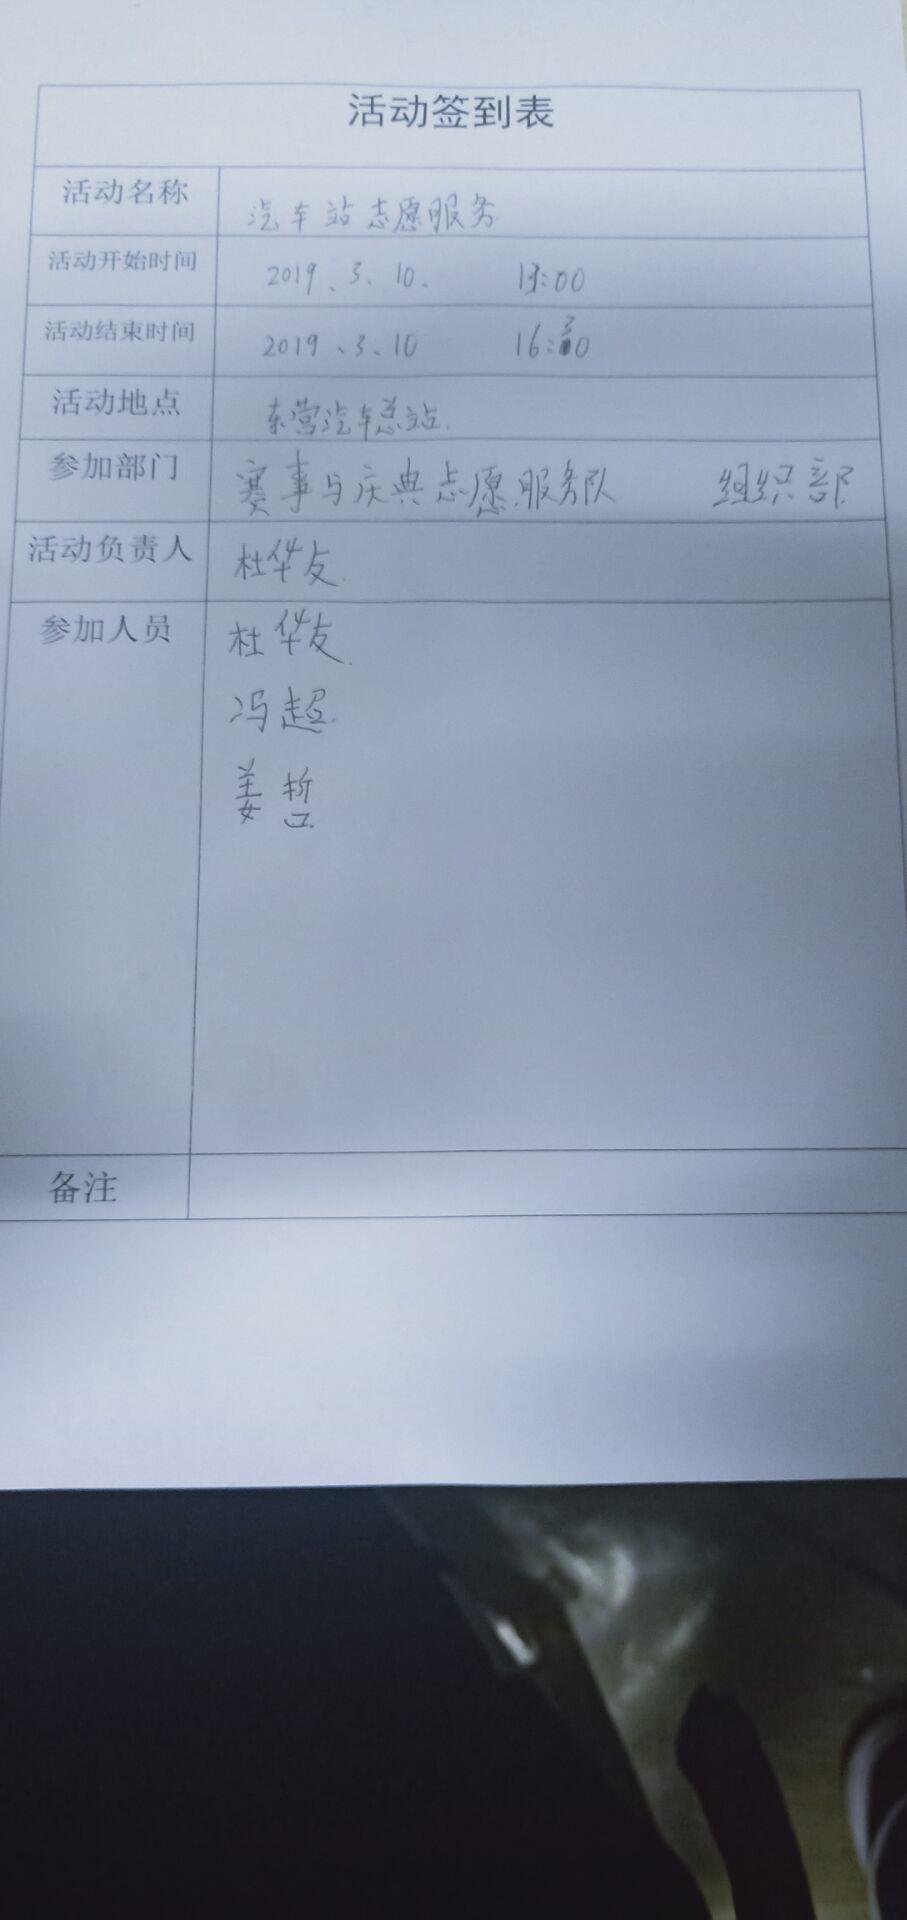 活动签到表
活动名称 汽车站志愿服务
活动开始时间 2019、3、10、 13:00
活动结束时间 2019、3、10 16:30
活动地点 东营汽车总站.
参加部门 赛事与庆典志愿服务队 组织部
活动负责人 杜华友.
参加人员 杜华友.
冯超.
姜哲.
备注